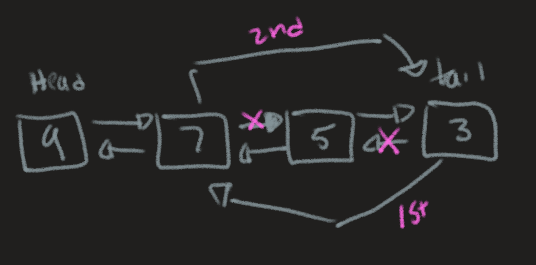 2nd
Head
tail
9 7 x 5 x 3
1st